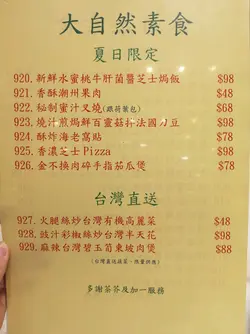 大自然素食
夏日限定
920. 新鮮水蜜桃牛肝菌醬芝士焗飯 $98
921. 香酥潮州果肉 $48
922. 秘制蜜汁叉燒(跟荷葉包) $68
923. 燒汁煎焗鮮百靈菇拌法國刀豆 $98
924. 酥炸海老窩貼 $78
925. 香濃芝士Pizza $98
926. 金不換肉碎手指茄瓜煲 $78
台灣直送
927. 火腿絲炒台灣有機高麗菜 $48
928. 豉汁彩椒絲炒台灣半天花 $98
929. 麻辣台灣碧玉筍東坡肉煲 $88
(台灣直送蔬菜，限量供應)
多謝茶芥及加一服務